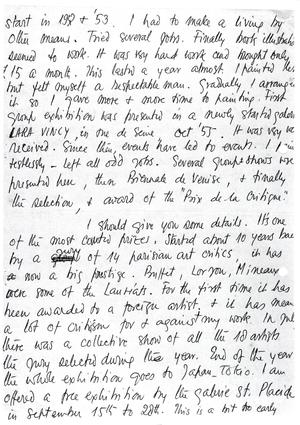 start in 1952 & '53. I had to make a living by
other means. Tried several jobs. Finally book illustration
seemed to work. It was very hard work and brought only
£15 a month. This lasted a year almost. I painted less
but felt myself a respectable man. Gradually I arranged
it so I gave more & more time to painting. First
group exhibition was presented in a newly started galerie
LARA VINCY, in rue de Seine Oct '55. It was very well
received. Since then, events have led to events. I
restlessly - left all odd jobs. Several group shows were
presented here, then Biennale de Venise, & finally
the selection, & award of the "Prix de la Critique."
I should give you some details. It's one
of the most coveted prices. Started about 10 years back
by a jury of 14 parisian art critics, it has
now a big prestige. Buffet, Lorjou, Minaux
were some of the Lauriats. For the first time it has
been awarded to a foreign artist, & it has meant
a lot of criticism for & against my work. In
there was a collective show of all the 18 artists
the jury selected during the year. End of the year
the whole exhibition goes to Japan - Tokio. I am
offered a free exhibition by the galerie St. Placide
in September 15th to 28th. This is a bit too early